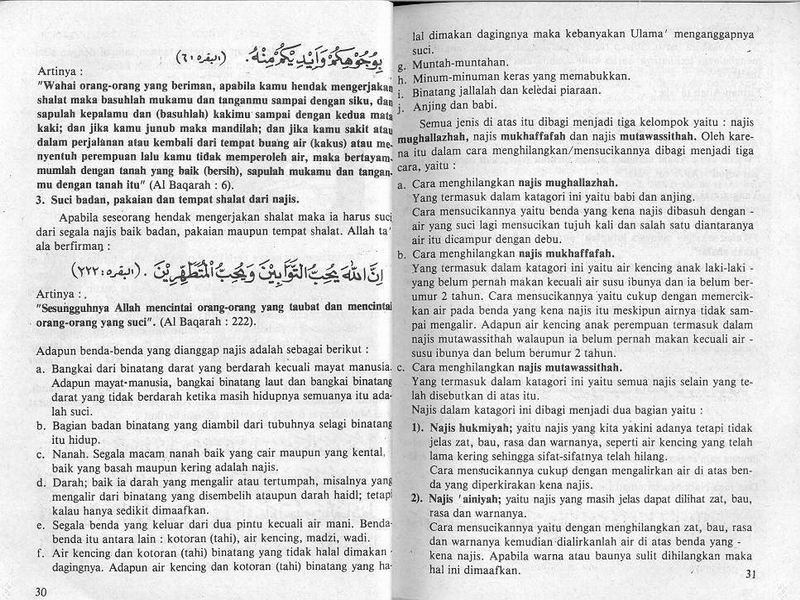 بِوُجُوْهِكُمْ وَاَيْدِيْكُمْ مِنْهُ. (البقره: ٦)
Artinya :
"Wahai orang-orang yang beriman, apabila kamu hendak mengerjakan
shalat maka basuhlah mukamu dan tanganmu sampai dengan siku, dan
sapulah kepalamu dan (basuhlah) kakimu sampai dengan kedua mata
kaki; dan jika kamu junub maka mandilah; dan jika kamu sakit atau
dalam perjalanan atau kembali dari tempat buang air (kakus) atau me-
nyentuh perempuan lalu kamu tidak memperoleh air, maka bertayam-
mumlah dengan tanah yang baik (bersih), sapulah mukamu dan tangan-
mu dengan tanah itu" (Al Baqarah : 6).
3. Suci badan, pakaian dan tempat shalat dari najis.
Apabila seseorang hendak mengerjakan shalat maka ia harus suci
dari segala najis baik badan, pakaian maupun tempat shalat. Allah ta'
ala berfirman :
اِنَّ اللهَ يُحِبُّ التَّوَّابِيْنَ وَيُحِبُّ الْمُتَطَهِّرِيْنَ. (البقره: ٢٢٢)
Artinya : .
"Sesungguhnya Allah mencintai orang-orang yang taubat dan mencintai
orang-orang yang suci". (Al Baqarah : 222).
Adapun benda-benda yang dianggap najis adalah sebagai berikut :
a. Bangkai dari binatang darat yang berdarah kecuali mayat manusia.
Adapun mayat-manusia, bangkai binatang laut dan bangkai binatang
darat yang tidak berdarah ketika masih hidupnya semuanya itu ada-
lah suci.
b. Bagian badan binatang yang diambil dari tubuhnya selagi binatang
itu hidup.
c. Nanah. Segala macam nanah baik yang cair maupun yang kental,
baik yang basah maupun kering adalah najis.
d. Darah; baik ia darah yang mengalir atau tertumpah, misalnya yang
mengalir dari binatang yang disembelih ataupun darah haidl; tetapi
kalau hanya sedikit dimaafkan.
e. Segala benda yang keluar dari dua pintu kecuali air mani. Benda-
benda itu antara lain : kotoran (tahi), air kencing, madzi, wadi.
f. Air kencing dan kotoran (tahi) binatang yang tidak halal dimakan -
dagingnya. Adapun air kencing dan kotoran (tahi) binatang yang ha-
30
lal dimakan dagingnya maka kebanyakan Ulama' menganggapnya
suci.
g. Muntah-muntahan.
h. Minum-minuman keras yang memabukkan.
i. Binatang jallalah dan keledai piaraan.
j. Anjing dan babi.
Semua jenis di atas itu dibagi menjadi tiga kelompok yaitu : najis
mughallazhah, najis mukhaffafah dan najis mutawassithah. Oleh kare-
na itu dalam cara menghilangkan/mensucikannya dibagi menjadi tiga
cara, yaitu :
a. Cara menghilangkan najis mughallazhah.
Yang termasuk dalam katagori ini yaitu babi dan anjing.
Cara mensucikannya yaitu benda yang kena najis dibasuh dengan -
air yang suci lagi mensucikan tujuh kali dan salah satu diantaranya
air itu dicampur dengan debu.
b. Cara menghilangkan najis mukhaffafah.
Yang termasuk dalam katagori ini yaitu air kencing anak laki-laki -
yang belum pernah makan kecuali air susu ibunya dan ia belum ber-
umur 2 tahun. Cara mensucikannya yaitu cukup dengan memercik-
kan air pada benda yang kena najis itu meskipun airnya tidak sam-
pai mengalir. Adapun air kencing anak perempuan termasuk dalam
najis mutawassithah walaupun ia belum pernah makan kecuali air -
susu ibunya dan belum berumur 2 tahun.
c. Cara menghilangkan najis mutawassithah.
Yang termasuk dalam katagori ini yaitu semua najis selain yang te-
lah disebutkan di atas itu.
Najis dalam katagori ini dibagi menjadi dua bagian yaitu :
1). Najis hukmiyah; yaitu najis yang kita yakini adanya tetapi tidak
jelas zat, bau, rasa dan warnanya, seperti air kencing yang telah
lama kering sehingga sifat-sifatnya telah hilang.
Cara mensucikannya cukup dengan mengalirkan air di atas ben-
da yang diperkirakan kena najis.
2). Najis 'ainiyah; yaitu najis yang masih jelas dapat dilihat zat, bau,
rasa dan warnanya.
Cara mensucikannya yaitu dengan menghilangkan zat, bau, rasa
dan warnanya kemudian dialirkanlah air di atas benda yang -
kena najis. Apabila warna atau baunya sulit dihilangkan maka
hal ini dimaafkan.
31